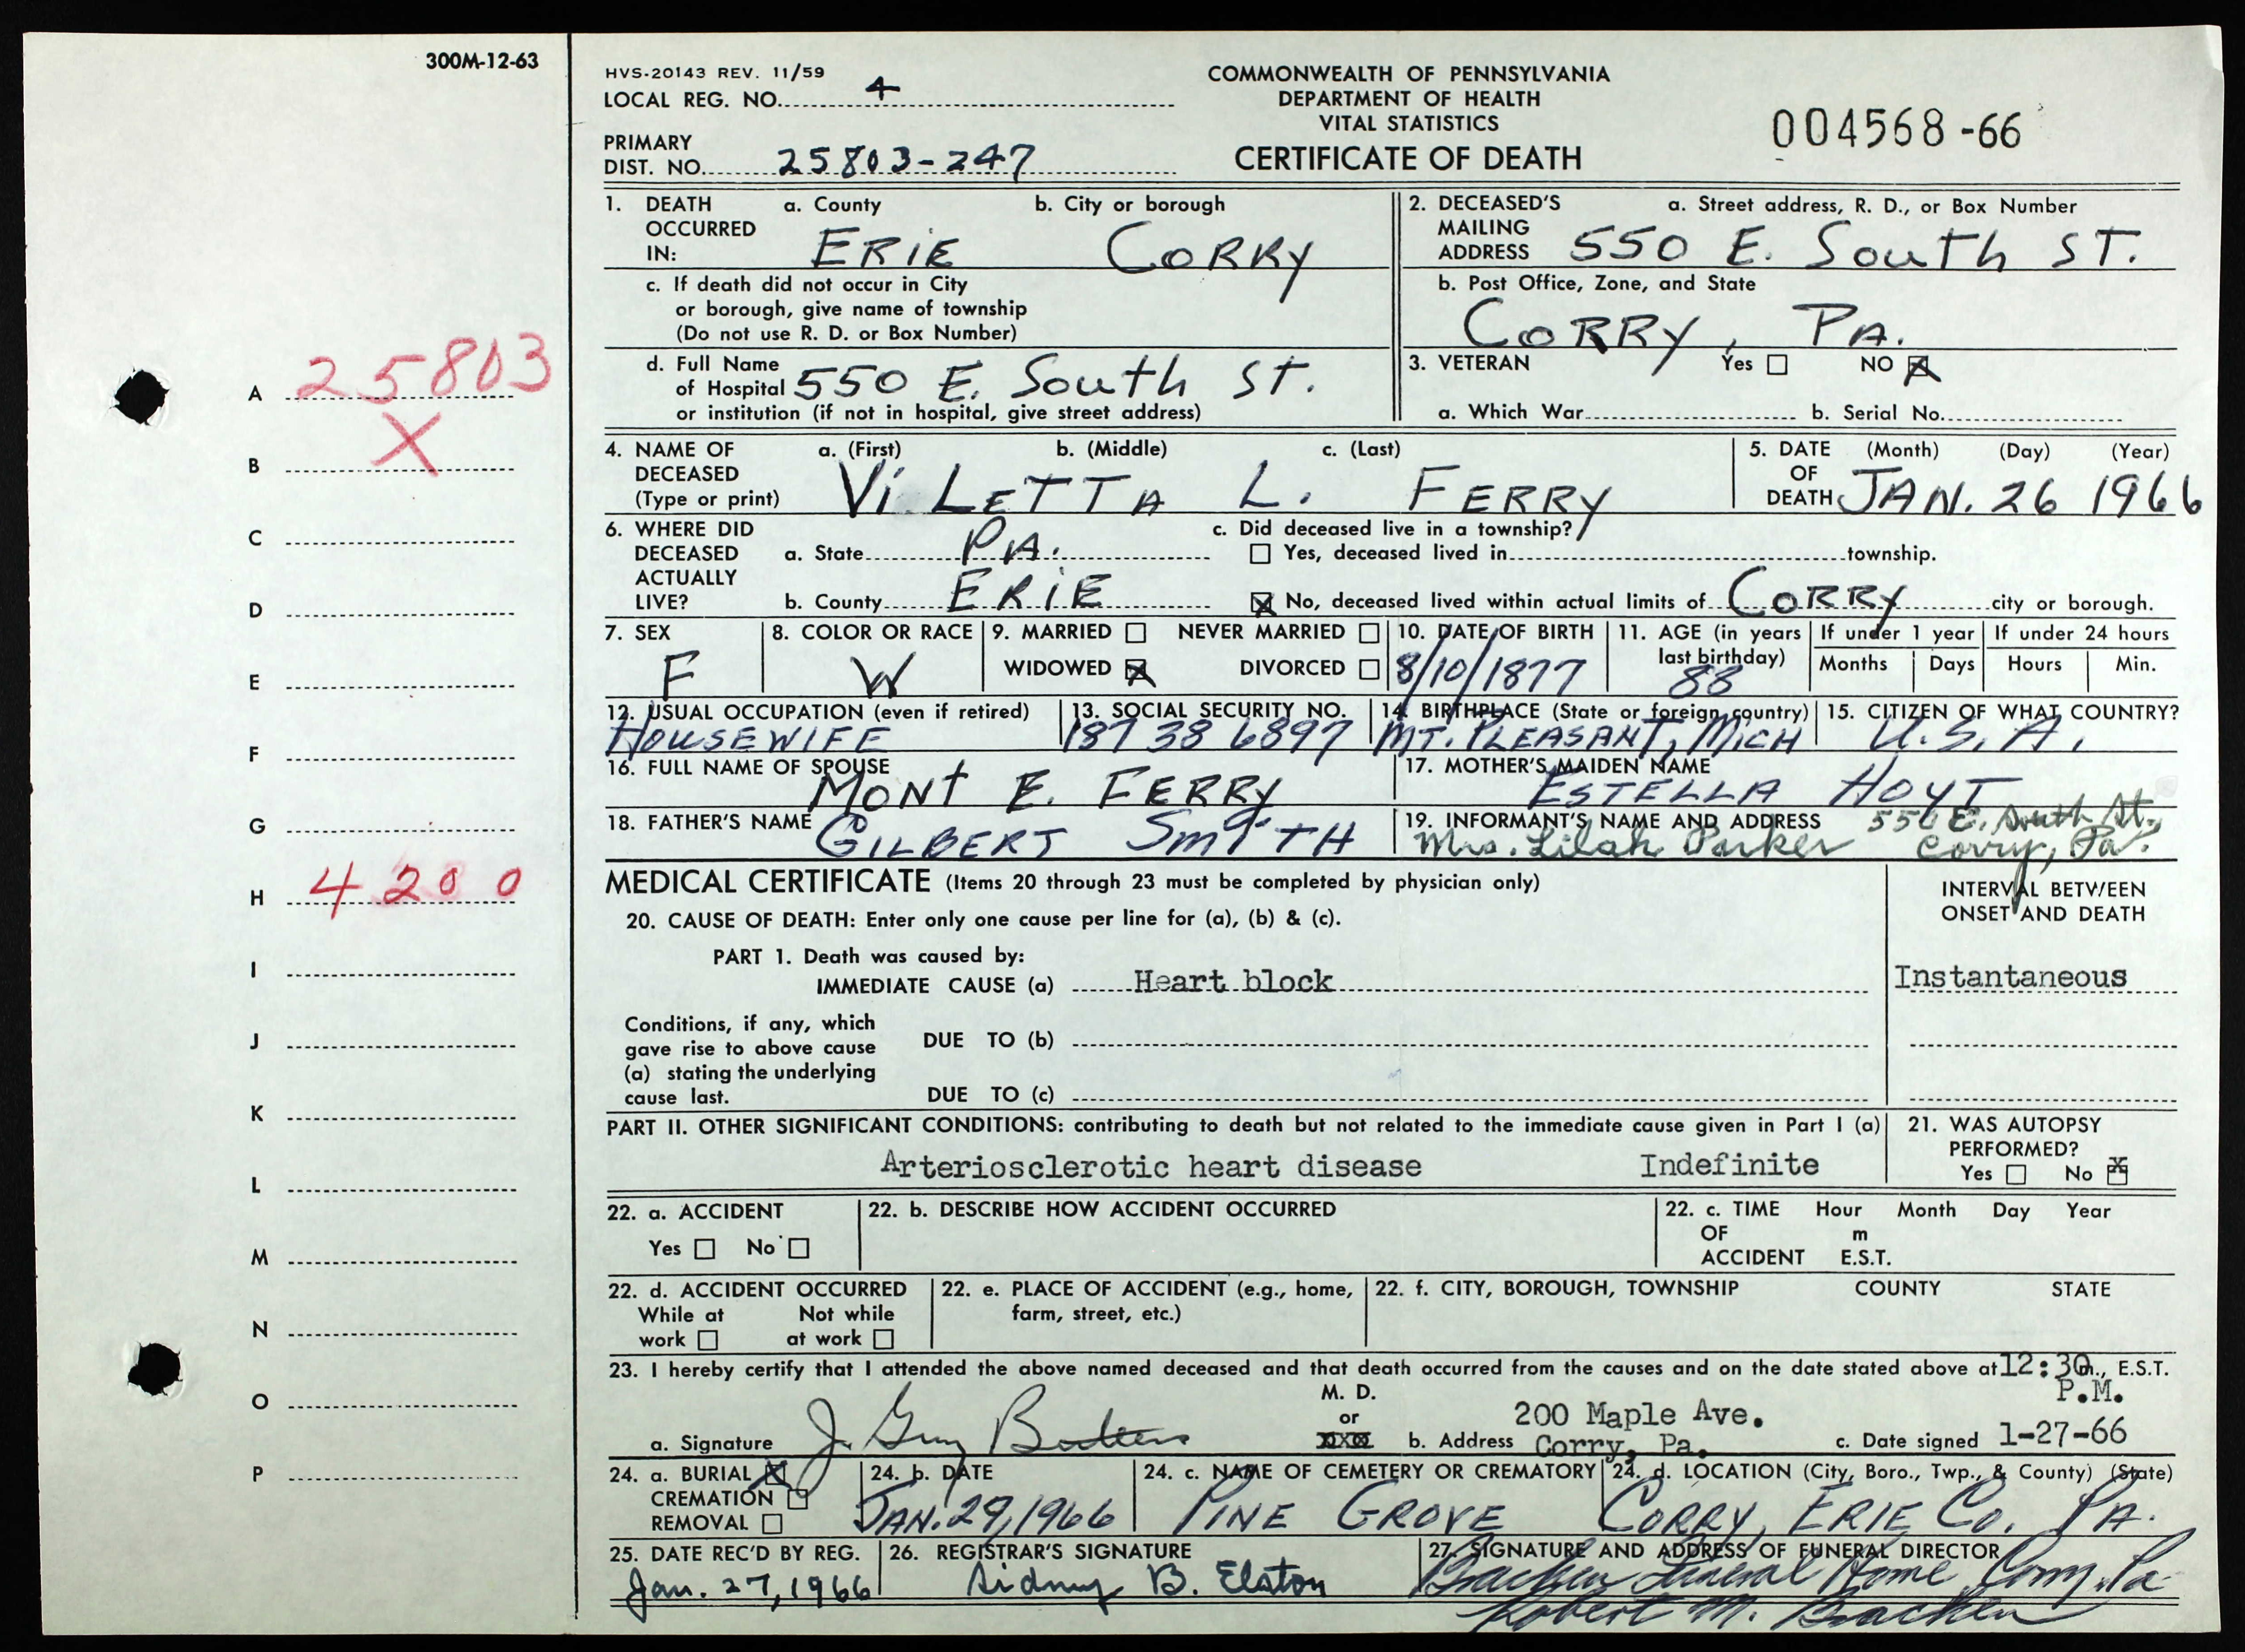 300M-12-63
HVS-20143 REV. 11/59
LOCAL REG. NO. 4
PRIMARY
DIST. NO. 25803-247
COMMONWEALTH OF PENNSYLVANIA
DEPARTMENT OF HEALTH
VITAL STATISTICS
CERTIFICATE OF DEATH
004568-66
1. DEATH OCCURRED IN: a. County b. City or borough
ERIE CORRY
c. If death did not occur in City
or borough, give name of township
(Do not use R. D. or Box Number)
d. Full Name
of Hospital 550 E. South ST.
or institution (if not in hospital, give street address)
2. DECEASED'S MAILING ADDRESS a. Street address, R. D., or Box Number
550 E. South ST.
b. Post Office, Zone, and State
CORRY, PA.
3. VETERAN Yes ☐ NO ☒
a. Which War b. Serial No.
4. NAME OF DECEASED (Type or print) a. (First) b. (Middle) c. (Last)
Vi LETTA L. FERRY
5. DATE OF DEATH (Month) (Day) (Year)
JAN. 26 1966
6. WHERE DID DECEASED ACTUALLY LIVE?
a. State PA.
b. County ERIE
c. Did deceased live in a township?
☐ Yes, deceased lived in township.
☒ No, deceased lived within actual limits of CORRY city or borough.
7. SEX
F
8. COLOR OR RACE
W
9. MARRIED ☐ NEVER MARRIED ☐
WIDOWED ☒ DIVORCED ☐
10. DATE OF BIRTH
8/10/1877
11. AGE (in years last birthday)
88
If under 1 year
Months Days
If under 24 hours
Hours Min.
12. USUAL OCCUPATION (even if retired)
HOUSEWIFE
13. SOCIAL SECURITY NO.
187 38 6897
14. BIRTHPLACE (State or foreign country)
MT. PLEASANT, MICH
15. CITIZEN OF WHAT COUNTRY?
U.S.A.
16. FULL NAME OF SPOUSE
MONT E. FERRY
17. MOTHER'S MAIDEN NAME
ESTELLA HOYT
18. FATHER'S NAME
GILBERT SMITH
19. INFORMANT'S NAME AND ADDRESS 550 E. South St.
Mrs. Lilah Parker Corry, Pa.
MEDICAL CERTIFICATE (Items 20 through 23 must be completed by physician only)
20. CAUSE OF DEATH: Enter only one cause per line for (a), (b) & (c).
INTERVAL BETWEEN
ONSET AND DEATH
PART 1. Death was caused by:
IMMEDIATE CAUSE (a) Heart block Instantaneous
Conditions, if any, which
gave rise to above cause
(a) stating the underlying
cause last.
DUE TO (b)
DUE TO (c)
PART II. OTHER SIGNIFICANT CONDITIONS: contributing to death but not related to the immediate cause given in Part I (a)
Arteriosclerotic heart disease Indefinite
21. WAS AUTOPSY
PERFORMED?
Yes ☐ No ☒
22. a. ACCIDENT
Yes ☐ No ☐
22. b. DESCRIBE HOW ACCIDENT OCCURRED
22. c. TIME OF ACCIDENT Hour Month Day Year
m
E.S.T.
22. d. ACCIDENT OCCURRED
While at work ☐ Not while at work ☐
22. e. PLACE OF ACCIDENT (e.g., home,
farm, street, etc.)
22. f. CITY, BOROUGH, TOWNSHIP COUNTY STATE
23. I hereby certify that I attended the above named deceased and that death occurred from the causes and on the date stated above at 12:30 m., E.S.T.
P.M.
a. Signature J. Guy
M. D.
or
b. Address 200 Maple Ave.
Corry, Pa.
c. Date signed 1-27-66
24. a. BURIAL ☒
CREMATION ☐
REMOVAL ☐
24. b. DATE
JAN. 29, 1966
24. c. NAME OF CEMETERY OR CREMATORY
PINE GROVE
24. d. LOCATION (City, Boro., Twp., & County) (State)
CORRY, ERIE Co. PA.
25. DATE REC'D BY REG.
Jan. 27, 1966
26. REGISTRAR'S SIGNATURE
Sidney B. Elston
27. SIGNATURE AND ADDRESS OF FUNERAL DIRECTOR
Bracken Funeral Home Corry, Pa
Robert M. Bracken
A 25803
B X
C
D
E
F
G
H 4200
I
J
K
L
M
N
O
P